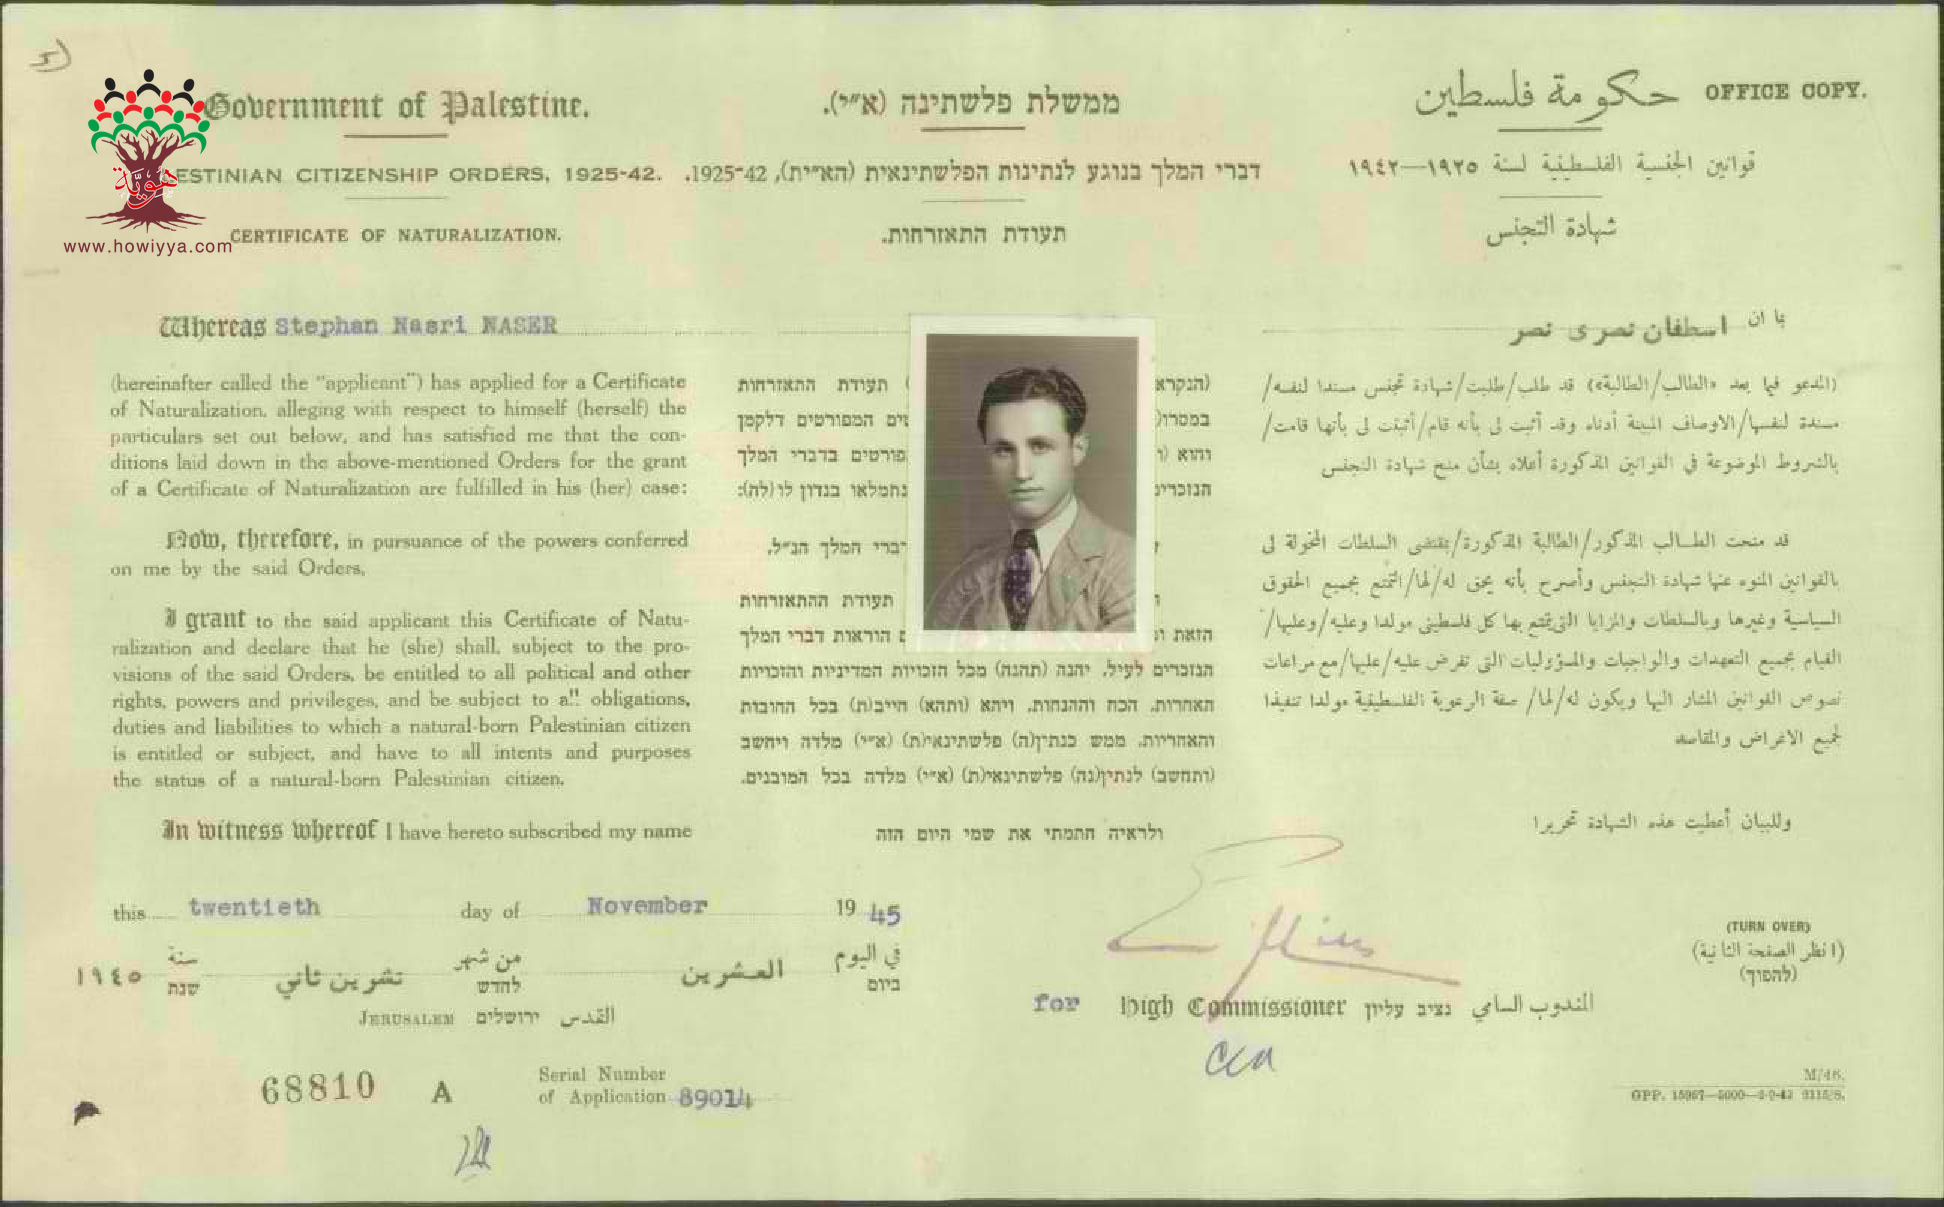 Government of Palestine.
ESTINIAN CITIZENSHIP ORDERS, 1925-42.
CERTIFICATE OF NATURALIZATION.
هوية
www.howiyya.com
ממשלת פלשתינה (א״י).
דברי המלך בנוגע לנתינות הפלשתינאית (הא״ית), 1925-42.
תעודת התאזרחות.
حكومة فلسطين
OFFICE COPY.
قوانين الجنسية الفلسطينية لسنة ١٩٢٥—١٩٤٢
شهادة التجنس
Whereas Stephan Nasri NASER
(hereinafter called the "applicant") has applied for a Certificate
of Naturalization, alleging with respect to himself (herself) the
particulars set out below, and has satisfied me that the con-
ditions laid down in the above-mentioned Orders for the grant
of a Certificate of Naturalization are fulfilled in his (her) case:
Now, therefore, in pursuance of the powers conferred
on me by the said Orders,
I grant to the said applicant this Certificate of Natu-
ralization and declare that he (she) shall, subject to the pro-
visions of the said Orders, be entitled to all political and other
rights, powers and privileges, and be subject to all obligations,
duties and liabilities to which a natural-born Palestinian citizen
is entitled or subject, and have to all intents and purposes
the status of a natural-born Palestinian citizen.
In witness whereof I have hereto subscribed my name
(הנקרא ) תעודת התאזרחות
במסרו( ים המפורטים דלקמן
והוא (ו פורטים בדברי המלך
הנזכרים נתמלאו בנדון לו(לה):
ברי המלך הנ״ל,
תעודת ההתאזרחות
הזאת ו ם הוראות דברי המלך
הנזכרים לעיל, יהנה (תהנה) מכל הזכויות המדיניות והזכויות
האחרות, הכח וההנחות, ויהא (ותהא) חייב(ת) בכל החובות
והאחריות, ממש כנתין(ה) פלשתינאי(ת) (א״י) מלדה ויחשב
(ותחשב) לנתין(נה) פלשתינאי(ת) (א״י) מלדה בכל המובנים.
ולראיה חתמתי את שמי היום הזה
بما ان اسطفان نصرى نصر
(المدعو فيما بعد «الطالب/الطالبة») قد طلب/طلبت/شهادة تجنس مسندا لنفسه/
مسندة لنفسها/الاوصاف المبينة أدناه وقد أثبت لى بأنه قام/أثبتت لى بأنها قامت/
بالشروط الموضوعة في القوانين المذكورة أعلاه بشأن منح شهادة التجنس
قد منحت الطالب المذكور/الطالبة المذكورة/بمقتضى السلطات المخولة لى
بالقوانين المنوه عنها شهادة التجنس وأصرح بأنه يحق له/لها/التمتع بجميع الحقوق
السياسية وغيرها وبالسلطات والمزايا التى يتمتع بها كل فلسطينى مولدا وعليه/وعليها/
القيام بجميع التعهدات والواجبات والمسؤوليات التى تفرض عليه/عليها/مع مراعات
نصوص القوانين المشار اليها ويكون له/لها/ صفة الرعوية الفلسطينية مولدا تنفيذا
لجميع الاغراض والمقاصد
وللبيان أعطيت هذه الشهادة تحريرا
this twentieth day of November 19 45
في اليوم العشرين من شهر تشرين ثاني سنة ١٩٤٥
ביום לחדש שנת
JERUSALEM ירושלים القدس
for High Commissioner נציב עליון المندوب السامي
(TURN OVER)
(انظر الصفحة الثانية)
(להפוך)
68810 A
Serial Number
of Application 89014
M/46.